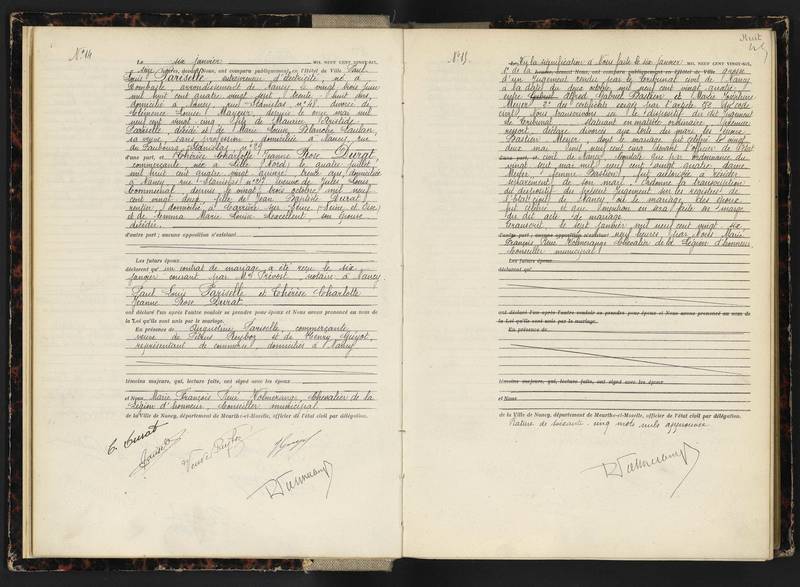 N° 14
Le six janvier MIL NEUF CENT VINGT-SIX,
heures, devant Nous, ont comparu publiquement en l'Hôtel de Ville Paul
Louis Pariselle entrepreneur d'électricité, né à
Dombasle, arrondissement de Nancy, le vingt trois juin
mil huit cent quatre vingt sept, trente huit ans,
domicilié à Nancy, rue Stanislas, n° 48, divorcé de
Clémence Louise Mayeur, depuis le onze mai mil
neuf cent vingt cinq, fils de Maurice Aristide
Pariselle, décédé et de Marie Louise Blanche
sa veuve, sans profession, domiciliée à Nancy, rue
du Faubourg Stanislas n°
d'une part, et Thérèse Charlotte Jeanne Rose Durat,
commerçante, née à Lille (Nord), le quatre juillet
mil huit cent quatre vingt quinze, trente ans, domiciliée
à Nancy, rue Stanislas, veuve de Jules Louis
depuis le vingt trois octobre mil neuf
cent vingt deux, fille de Jean Baptiste Durat,
rentier, domicilié à Carrière sur Seine (Seine et Oise)
et de Emma Marie Louise son épouse,
décédée.
d'autre part ; aucune opposition n'existant
Les futurs époux
déclarent qu'un contrat de mariage a été reçu le six
janvier courant par Me Prévost, notaire à Nancy.
Paul Louis Pariselle et Thérèse Charlotte
Jeanne Rose Durat
ont déclaré l'un après l'autre vouloir se prendre pour époux et Nous avons prononcé au nom de
la Loi qu'ils sont unis par le mariage.
En présence de Augustine Pariselle, commerçante,
veuve de et de Henry
représentant de commerce, domiciliés à Nancy
témoins majeurs, qui, lecture faite, ont signé avec les époux
et Nous, Marie François René Kolmerange, Chevalier de la
Légion d'honneur, Conseiller municipal
de la Ville de Nancy, département de Meurthe-et-Moselle, officier de l'état civil par délégation.
C. Durat
N° 15.
Huit
Le Vu la signification à Nous faite le six janvier MIL NEUF CENT VINGT-SIX,
1° de la heures, devant Nous, ont comparu publiquement en l'Hôtel de Ville grosse
d'un jugement rendu par le tribunal civil de Nancy
à la date du deux octobre mil neuf cent vingt quatre
entre Alfred Gabriel Bastien et Marie
Meyer ; 2° du certificat exigé par l'article 252 du code
civil, Nous transcrivons ici le dispositif du dit jugement :
Le Tribunal, statuant en matière ordinaire, premier
ressort, déclare divorcés aux torts du mari les époux
Bastien Meyer, dont le mariage fut célébré le vingt
deux mai mil neuf cent devant l'officier de l'état
d'une part, et civil de Nancy, que par ordonnance du
vingt sept mai mil neuf cent vingt quatre dame
Meyer, femme Bastien, fut autorisée à résider
séparément de son mari, ordonne la transcription
du dispositif du présent jugement sur les registres de
l'Etat civil de Nancy où le mariage des époux
fut célébré et mention en sera faite en marge
du dit acte de mariage.
Transcrit, le sept janvier mil neuf cent vingt six,
d'autre part ; aucune opposition n'existant par Nous, Marie
François René Kolmerange, Chevalier de la Légion d'honneur
Conseiller municipal
Les futurs époux
déclarent qu'
ont déclaré l'un après l'autre vouloir se prendre pour époux et Nous avons prononcé au nom de
la Loi qu'ils sont unis par le mariage.
En présence de
témoins majeurs, qui, lecture faite, ont signé avec les époux
et Nous
de la Ville de Nancy, département de Meurthe-et-Moselle, officier de l'état civil par délégation.
Rature de soixante-cinq mots nuls approuvée